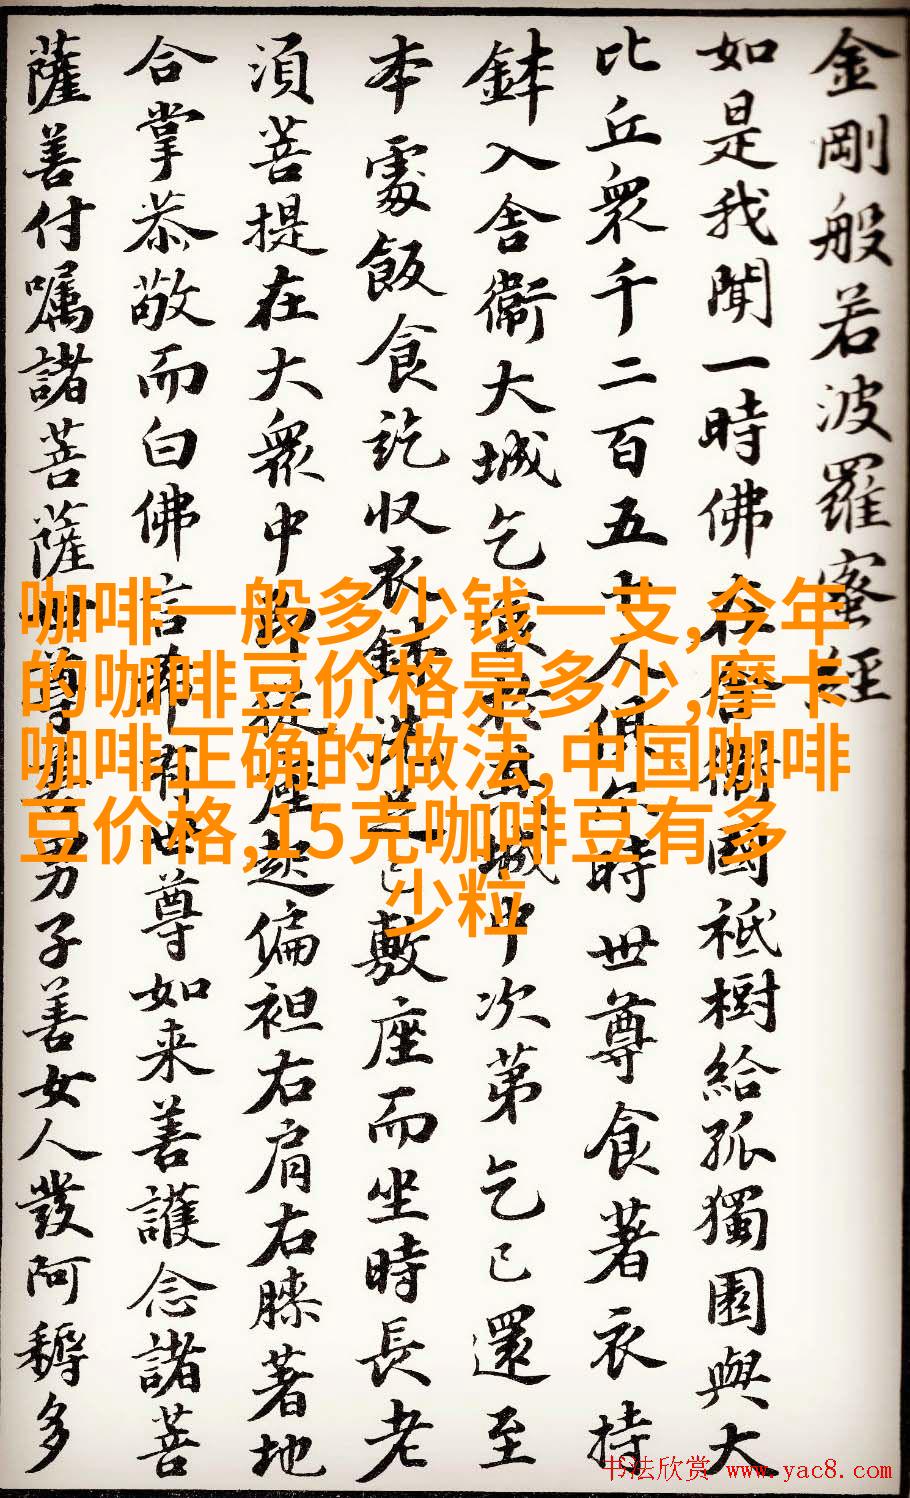 金剛般若波羅蜜經
如是我聞一時佛在舍衛國祇樹給孤獨園與大
比丘眾千二百五十人俱尒時世尊食著衣持
鉢入舍衛大城乞食於其城中次第乞已還至
本處飯食訖収衣鉢洗足已敷座而坐時長老
湏菩提在大眾中即從座起偏袒右肩右膝著地
合掌恭敬而白佛言希有世尊如来善護念諸菩
薩善付囑諸菩薩世尊善男子善女人發阿耨多
咖啡一般多少钱一支,今年
的咖啡豆价格是多少,摩卡
咖啡正确的做法,中国咖啡
豆价格,15克咖啡豆有多
少粒
书法欣赏 www.yac8.com